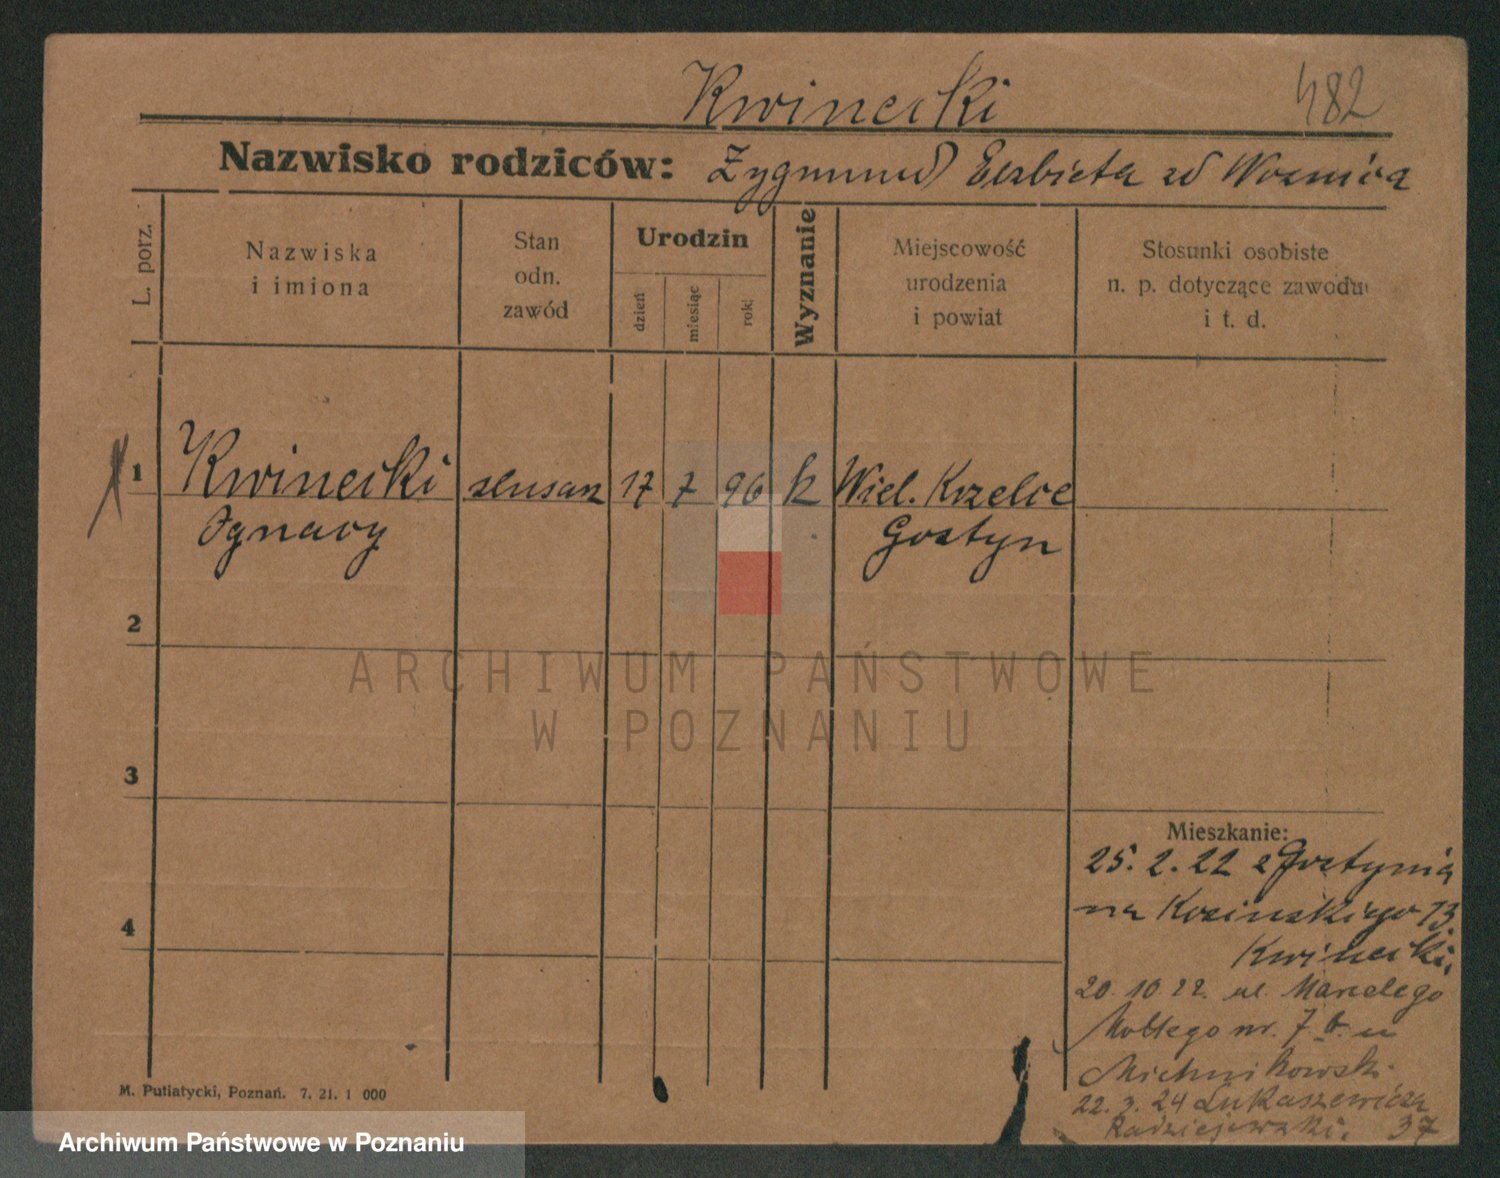 Kwinecki
482
Nazwisko rodziców: Zygmund Elzbieta zd Woznica
L. porz.
Nazwiska
i imiona
Stan
odn.
zawód
Urodzin
dzień
miesiąc
rok
Wyznanie
Miejscowość
urodzenia
i powiat
Stosunki osobiste
n. p. dotyczące zawodu
i t. d.
1 Kwinecki slusarz 17 7 96 k Wiel. Krzelce
Ignacy Gostyn
2
ARCHIWUM PAŃSTWOWE
W POZNANIU
3
Mieszkanie:
25. 2. 22 z Gostynia
na Kosinskiego 13
Kwinecki.
4
20. 10. 22. ul. Marcelego
Mottego nr. 7 u
Michnikowski
22. 3. 24 Lukaszewicza
Radziejewski. 37
M. Putiatycki, Poznań. 7. 21. 1 000
Archiwum Państwowe w Poznaniu